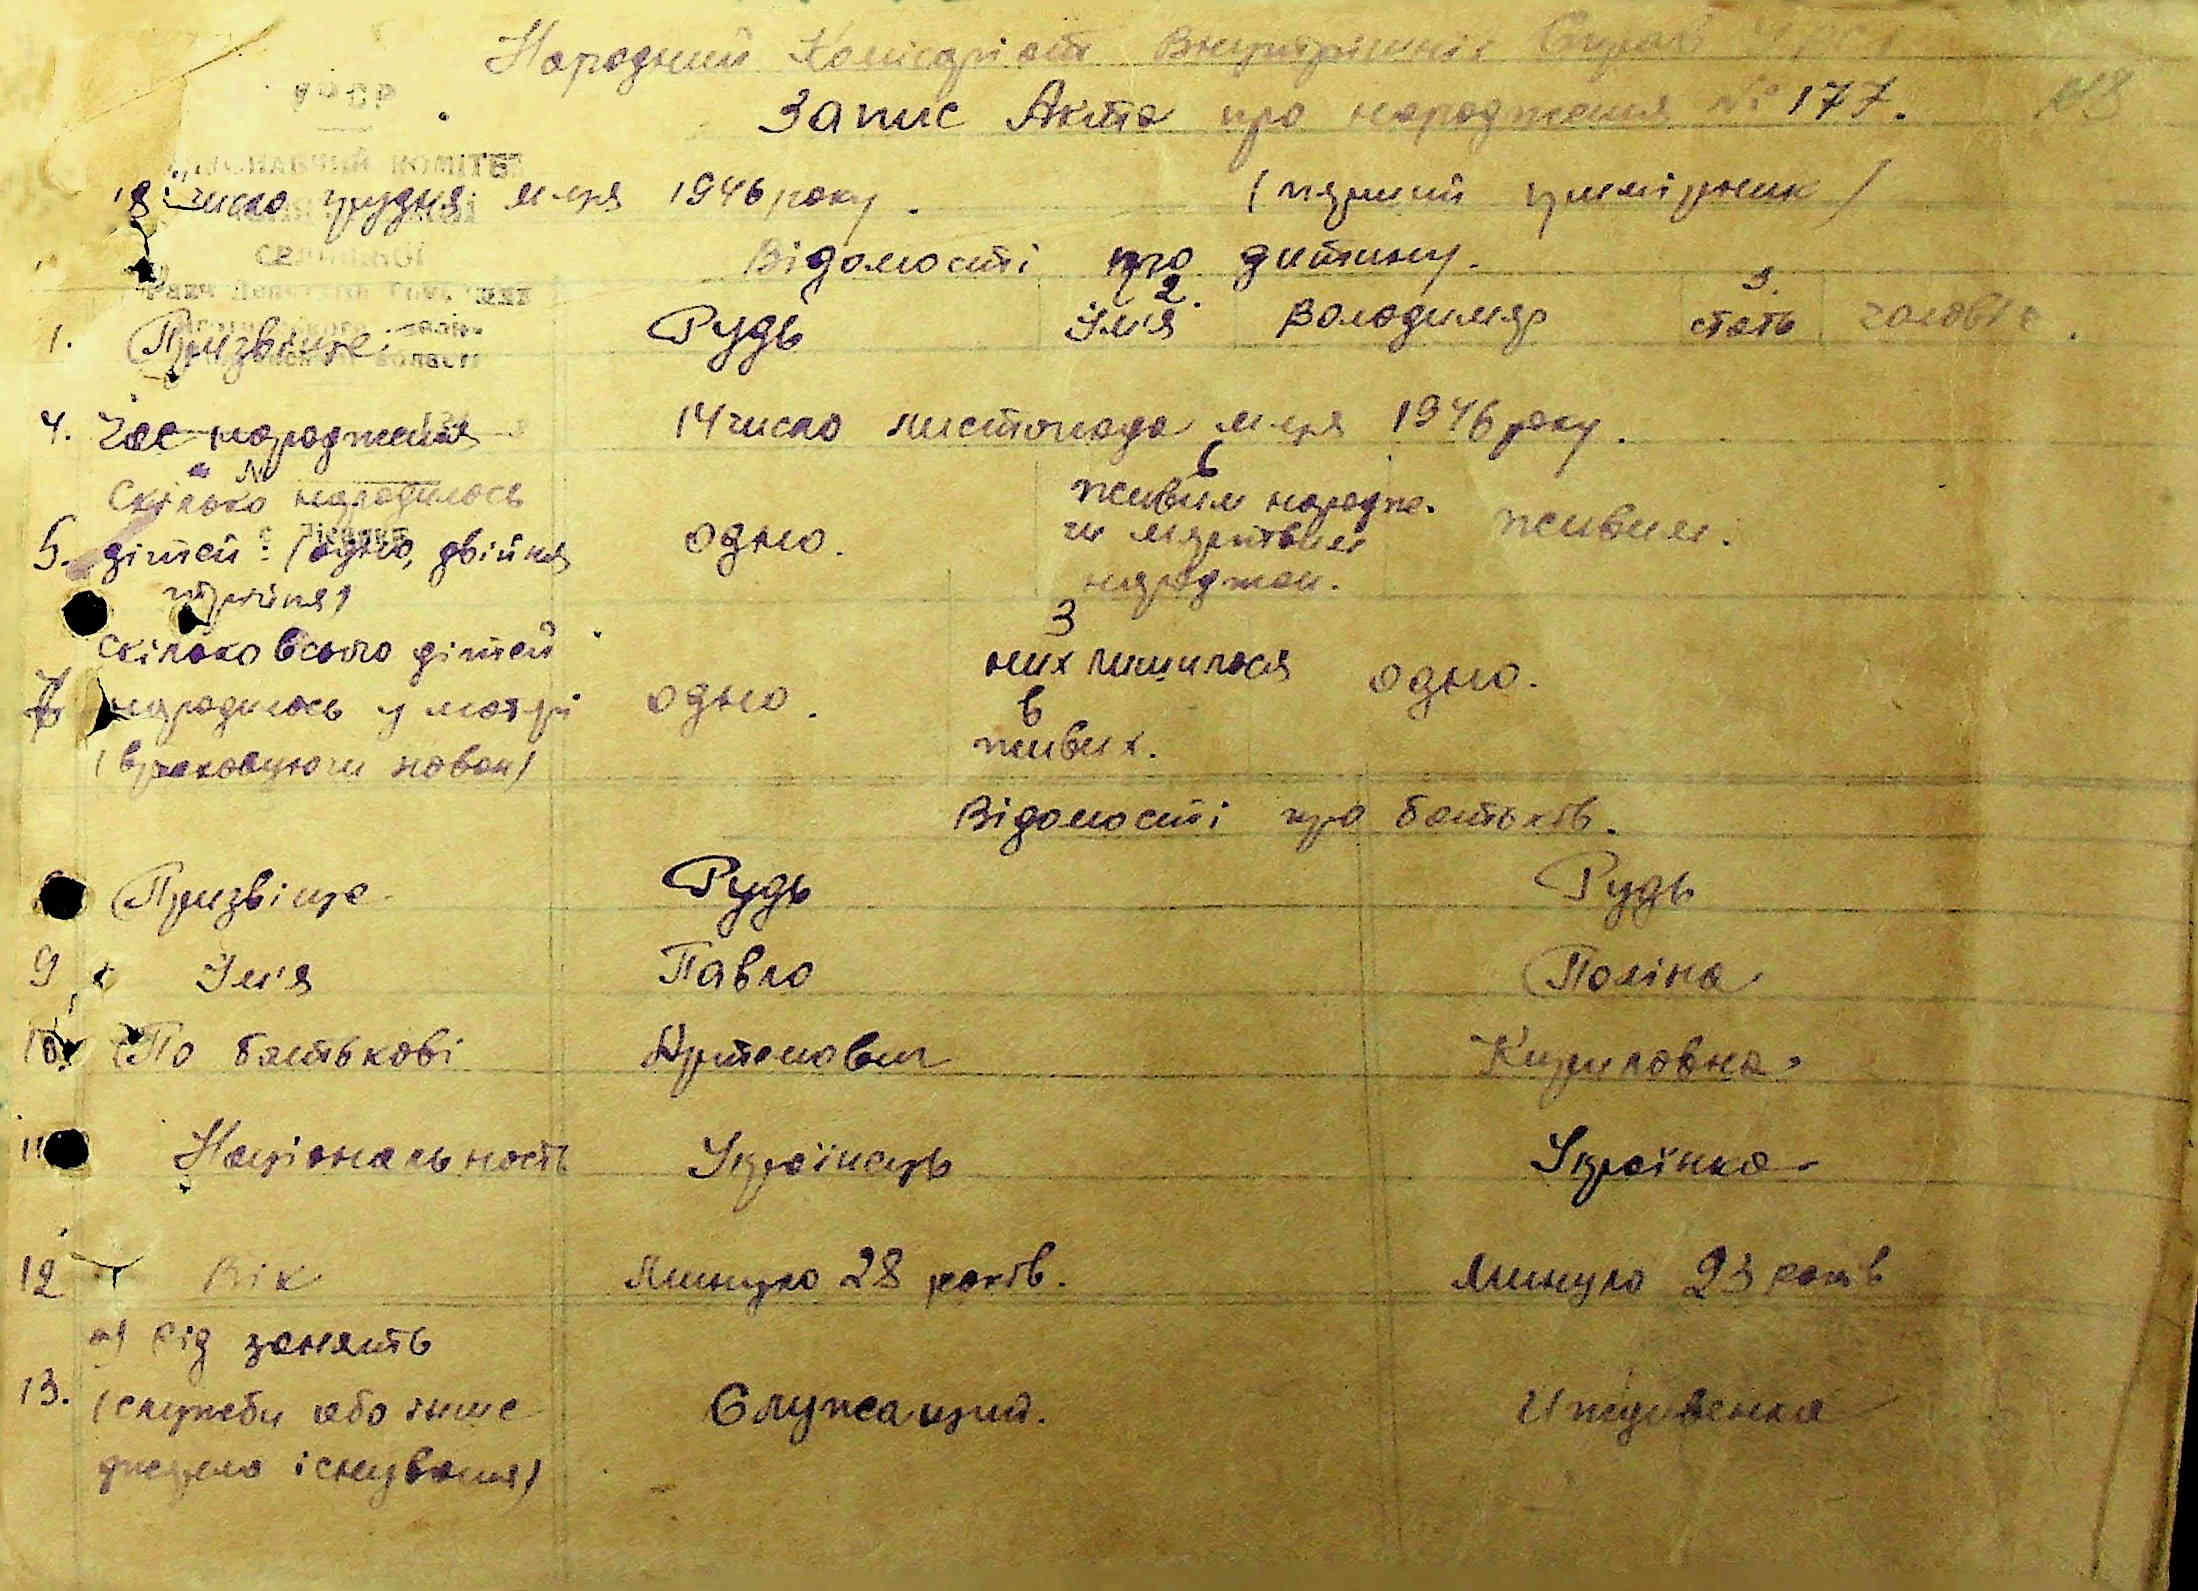 Народний Комісаріат Внутрішніх Справ УРСР
Запис Акта про народження № 177.
18 число грудня м-ця 1946 року. (перший примірник)
Відомості про дитину.
1. Призвіще Рудь 2. Ім'я Володимир 3. стать чоловіч.
4. Час народження 14 число листопада м-ця 1946 року.
Скілько народилось
5. дітей: (одно, двійня
трійня) одно. 6 живим народже.
чи мертвим
народжен. живим.
Скілько всього дітей
7 народилось у матері
(враховуючи новон) одно. З
них лишилося
в
живих. одно.
Відомості про батьків.
Призвіще Рудь Рудь
9 Ім'я Павло Поліна
10. По батькові Артемович Кириловна.
11 Національность Українець Українка
12 Вік Минуло 28 років. Минуло 23 років
а) Рід занять
13. (служби або інше
джерело існування) Служащий. Иждивенка